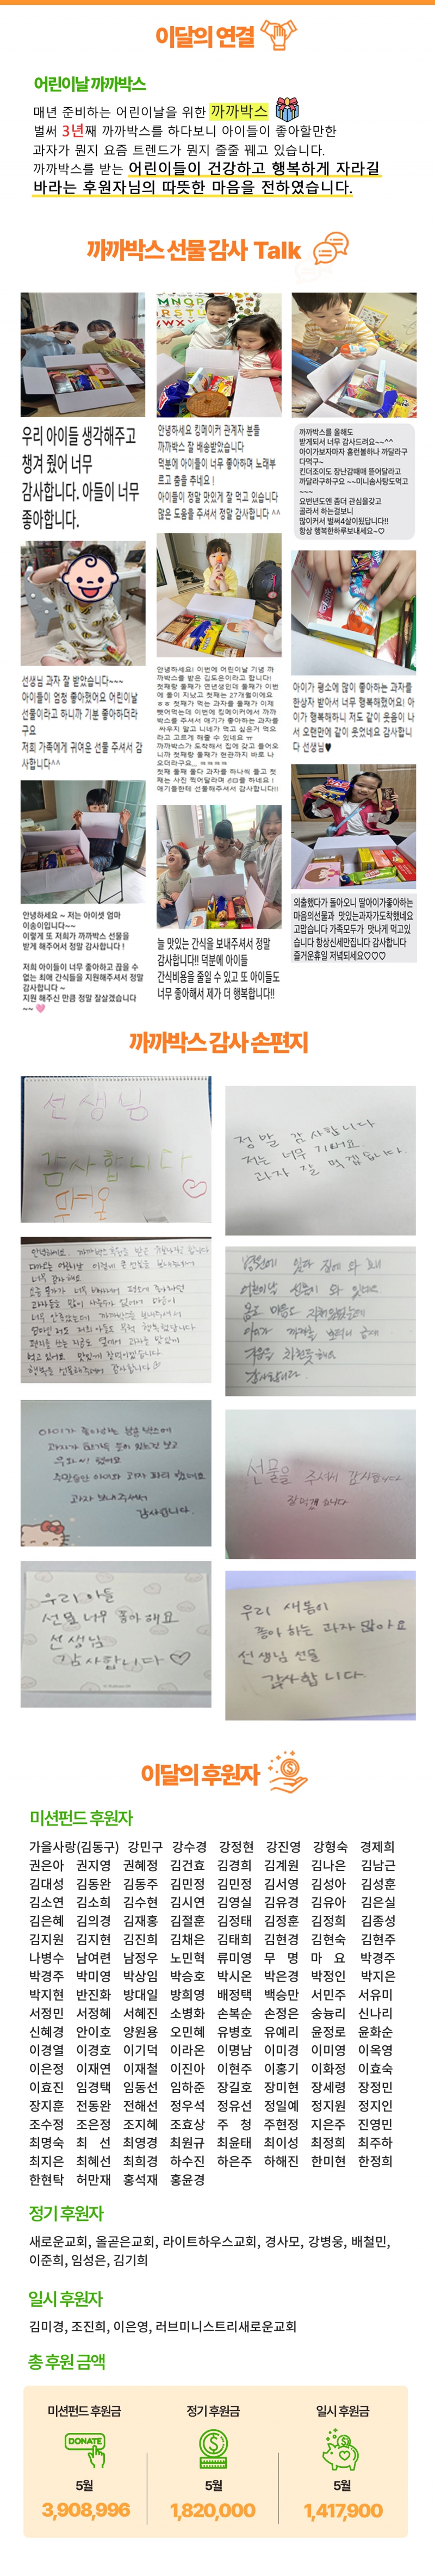 이달의 연결
어린이날 까까박스
매년 준비하는 어린이날을 위한 까까박스
벌써 3년째 까까박스를 하다보니 아이들이 좋아할만한
과자가 뭔지 요즘 트렌드가 뭔지 줄줄 꿰고 있습니다.
까까박스를 받는 어린이들이 건강하고 행복하게 자라길
바라는 후원자님의 따뜻한 마음을 전하였습니다.
까까박스 선물 감사 Talk
우리 아이들 생각해주고
챙겨 줬어 너무
감사합니다. 아들이 너무
좋아합니다.
선생님 과자 잘 받았습니다~~~
아이들이 엄청 좋아했어요 어린이날
선물이라고 하니까 기분 좋아하더라
구요
저희 가족에게 귀여운 선물 주셔서 감
사합니다^^
안녕하세요 ~ 저는 아이셋 엄마
이송이입니다~~
이렇게 또 저희가 까까박스 선물을
받게 해주어서 정말 감사합니다 !
저희 아이들이 너무 좋아하고 끊을 수
없는 최애 간식들을 지원해주셔서 정말
감사합니다 ~
지원 해주신 만큼 정말 잘살겠습니다
~~
안녕하세요 킹메이커 관계자 분들
까까박스 잘 배송받았습니다
덕분에 아이들이 너무 좋아하며 노래부
르고 춤을 추네요 !
아이들이 정말 맛있게 잘 먹고 있습니다
많은 도움을 주셔서 정말 감사합니다 ^^
안녕하세요! 이번에 어린이날 기념 까
까박스를 받은 김도은이라고 합니다!
첫째랑 둘째가 연년생인데 둘째가 이번
에 돌이 지났고 첫째는 27개월이에요
ㅎㅎ 첫째가 먹는 과자를 둘째가 이제
뺏어먹는데 이번에 킹메이커에서 까까
박스를 주셔서 애기가 좋아하는 과자를
싸우지 말고 니네가 먹고 싶은거 먹으
라고 고르게 해줄 수 있네요 ㅠ
까까박스가 도착해서 집에 갖고 들어오
니까 첫째랑 둘째가 현관까지 바로 나
오더라구요_ ㅋㅋㅋㅋ
첫째 둘째 둘다 과자를 하나씩 들고 첫
째는 사진 찍어달라며 손더를 하네요 !
얘기를한테 선물해주셔서 감사합니다!!
늘 맛있는 간식을 보내주셔서 정말
감사합니다!! 덕분에 아이들
간식비용을 줄일 수 있고 또 아이들도
너무 좋아해서 제가 더 행복합니다!!
까까박스를 올해도
받게되서 너무 감사드려요~~^^
아이가보자마자 홈런볼하나 까달라구
다먹구~
킨더조이도 장난감때매 뜯어달라고
까달라구하구요 ~~미니솜사탕도먹고
~~~
요번년도엔 좀더 관심을갖고
골라서 하는걸보니
많이커서 벌써4살이됬답니다!!
항상 행복한하루보내세요~♡
아이가 평소에 많이 좋아하는 과자를
한상자 받아서 너무 행복했해요! 아
이가 행복해하니 저도 같이 웃음이 나
서 오랜만에 같이 웃었네요 감사합니
다 선생님♥
외출했다가 돌아오니 딸아이가좋아하는
마음의선물과 맛있는과자가도착했네요
고맙습니다 가족모두가 맛나게 먹고있
습니다 항상신세만집니다 감사합니다
즐거운휴일 저녁되세요♡♡♡
까까박스 감사 손편지
선생님
감사합니다
정말 감사합니다
저는 너무 기뻐요.
과자 잘 먹겠습니다.
감사합니다.
아이가 좋아하는 왕문 박스에
감사합니다.
선물을 주셔서 감사합니다
잘 먹겠습니다
우리 아들
선물 너무 좋아해요
선생님
감사합니다 ♡
우리 새봄이
좋아 하는 과자 많아요
선생님 선물
감사합니다.
이달의 후원자
미션펀드 후원자
가을사랑(김동구) 강민구 강수경 강정현 강진영 강형숙 경제희
권은아 권지영 권혜정 김건효 김경희 김계원 김나은 김남근
김대성 김동완 김동주 김민정 김민정 김서영 김성아 김성훈
김소연 김소희 김수현 김시연 김영실 김유경 김유아 김은실
김은혜 김의경 김재홍 김절훈 김정태 김정훈 김정희 김종성
김지원 김지현 김진희 김채은 김태희 김현경 김현숙 김현주
나병수 남여련 남정우 노민혁 류미영 무 명 마 요 박경주
박경주 박미영 박상임 박승호 박시온 박은경 박정인 박지은
박지현 반진화 방대일 방희영 배정택 백승만 서민주 서유미
서정민 서정혜 서혜진 소병화 손복순 손정은 숭늉리 신나리
신혜경 안이호 양원용 오민혜 유병호 유예리 윤정로 윤화순
이경열 이경호 이기덕 이라온 이명남 이미경 이미영 이옥영
이은정 이재연 이재철 이진아 이현주 이홍기 이화정 이효숙
이효진 임경택 임동선 임하준 장길호 장미현 장세령 장정민
장지훈 전동완 전해선 정우석 정유선 정일예 정지원 정지인
조수정 조은정 조지혜 조효상 주 청 주현정 지은주 진영민
최명숙 최 선 최영경 최원규 최윤태 최이성 최정희 최주하
최지은 최혜선 최희경 하수진 하은주 하해진 한미현 한정희
한현탁 허만재 홍석재 홍윤경
정기 후원자
새로운교회, 올곧은교회, 라이트하우스교회, 경사모, 강병웅, 배철민,
이준희, 임성은, 김기희
일시 후원자
김미경, 조진희, 이은영, 러브미니스트리새로운교회
총 후원 금액
미션펀드 후원금 정기 후원금 일시 후원금
DONATE
5월 5월 5월
3,908,996 1,820,000 1,417,900